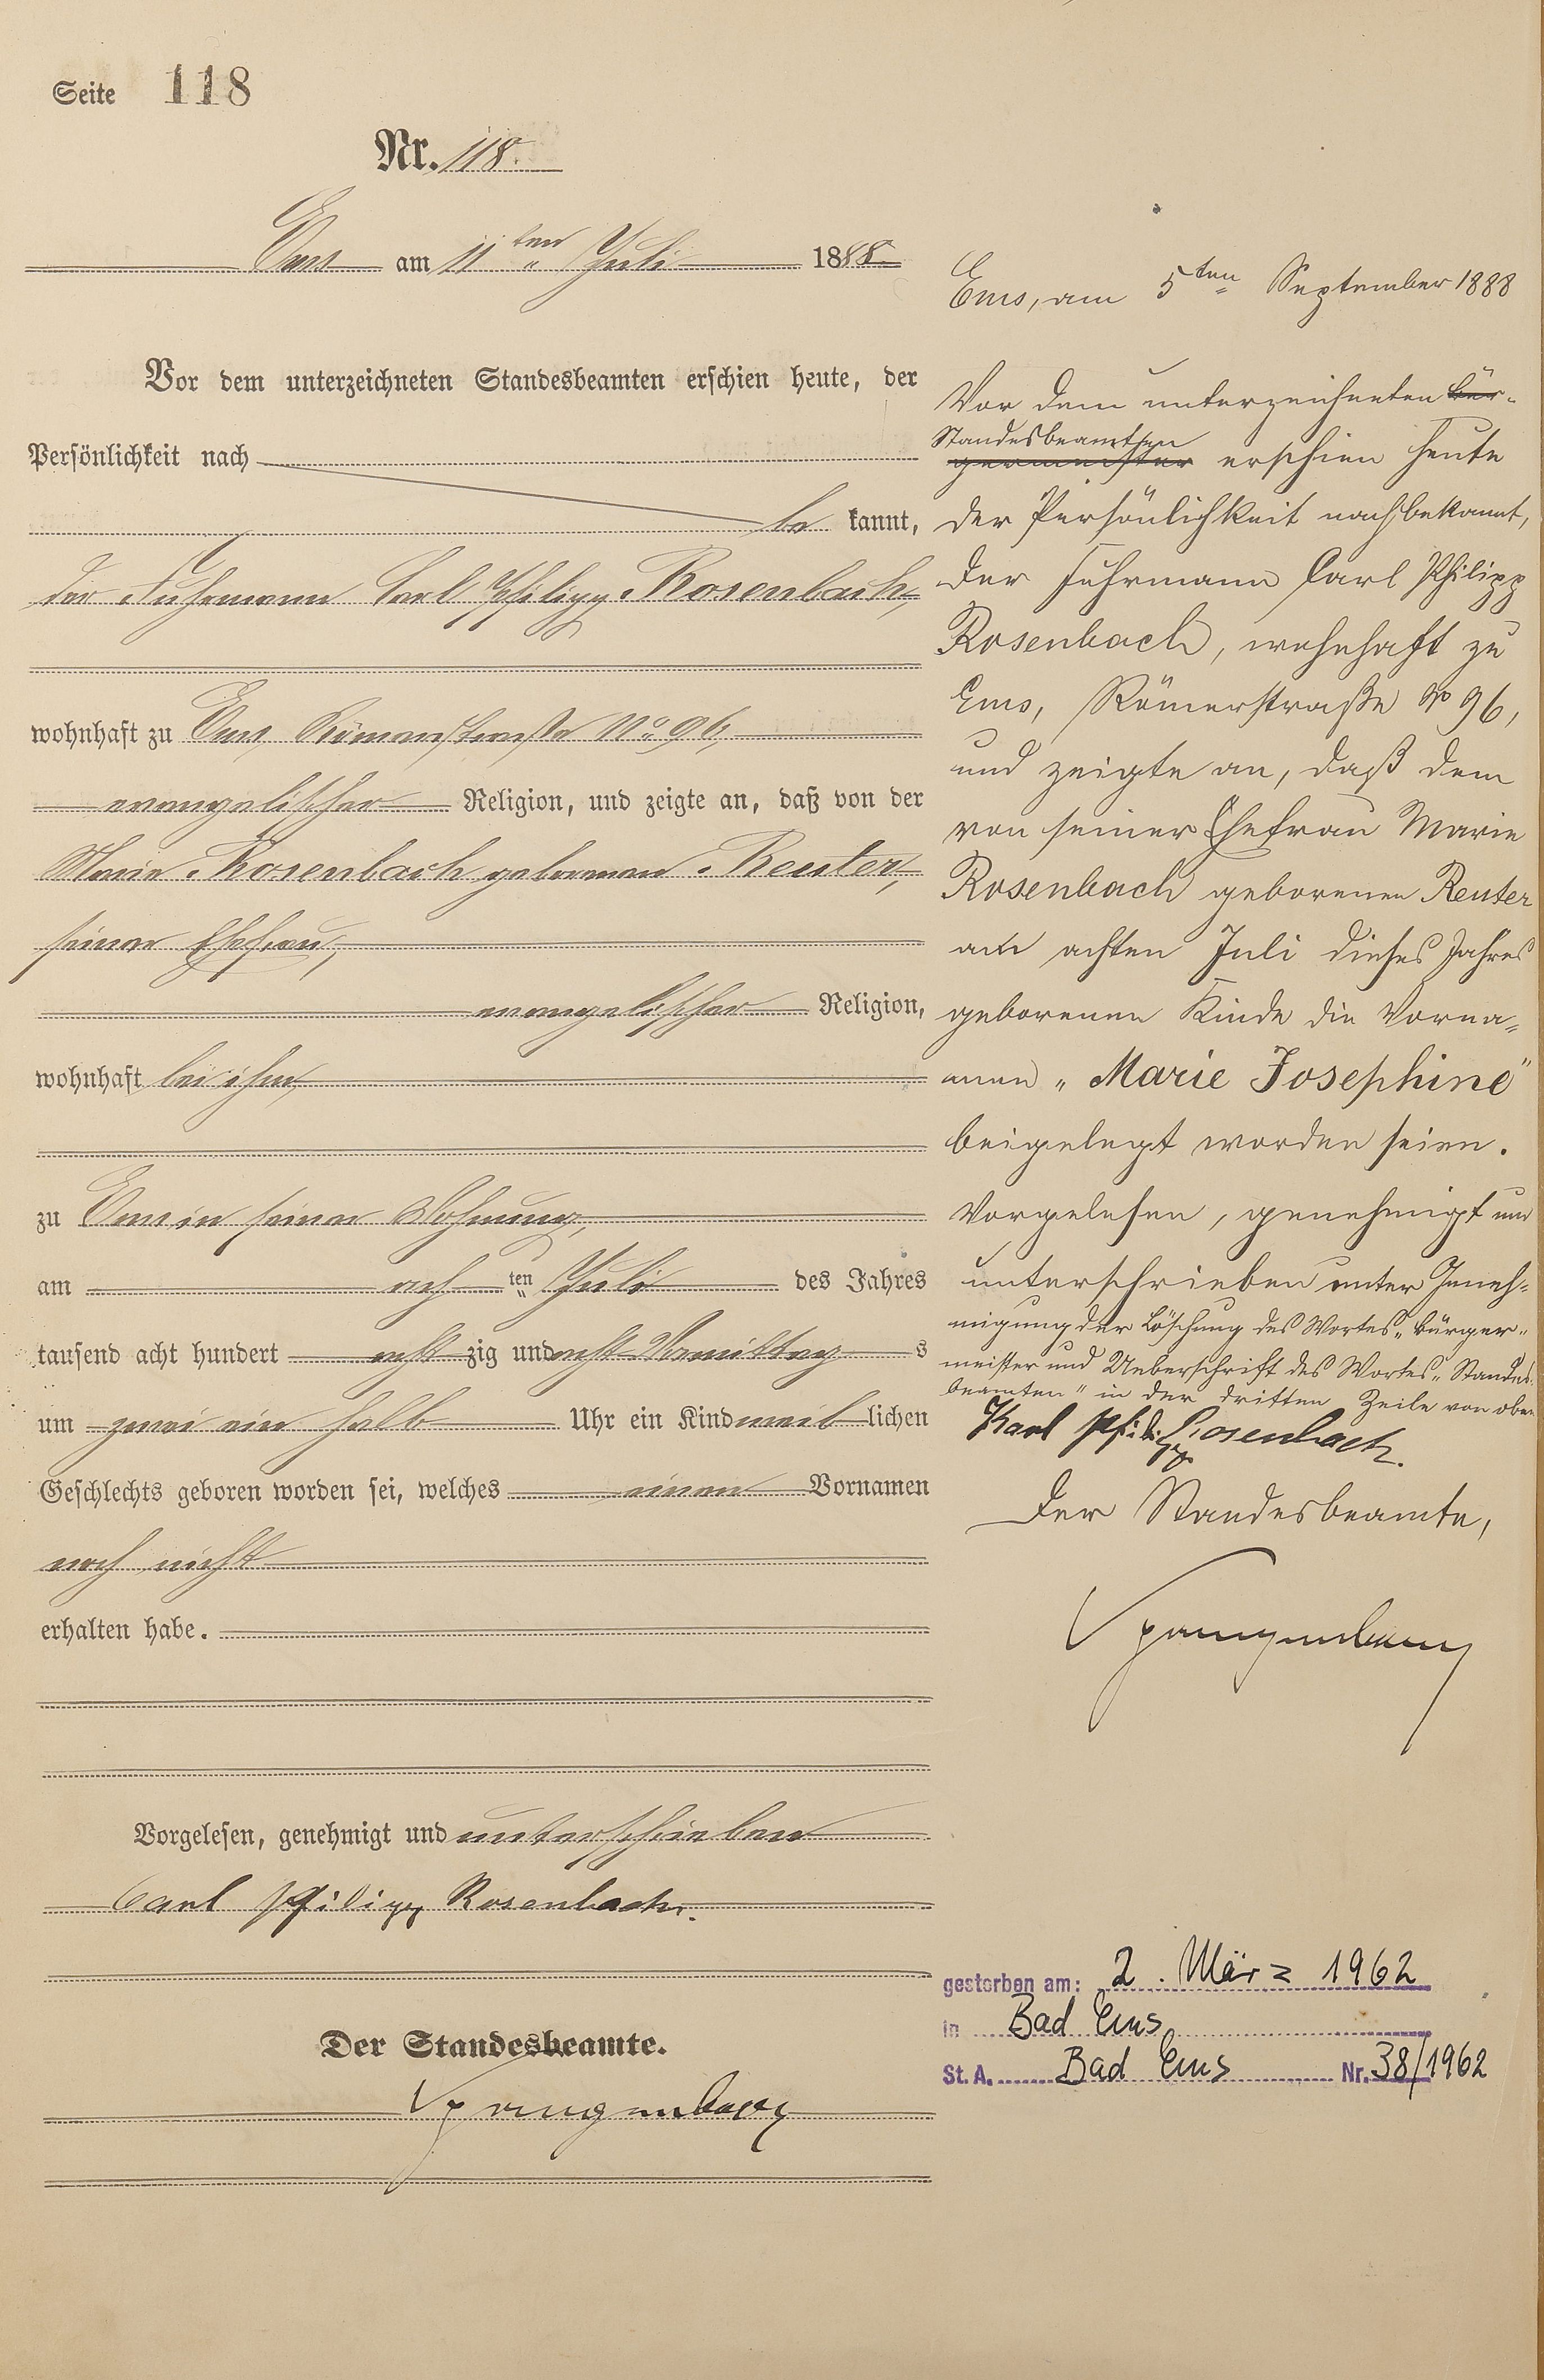 Seite 118
Nr. 118.
Ems am 11ten Juli 1888
Vor dem unterzeichneten Standesbeamten erschien heute, der
Persönlichkeit nach
be kannt,
der Fuhrmann Carl Philipp Rosenbach,
wohnhaft zu Ems, Römerstraße No 96,
evangelischer Religion, und zeigte an, daß von der
Marie Rosenbach geborenen Reuter,
seiner Ehefrau,
evangelischer Religion,
wohnhaft bei ihm,
zu Ems in seiner Wohnung,
am ach ten Juli des Jahres
tausend acht hundert acht zig und acht Vormittag s
um zwei ein halb Uhr ein Kind weib lichen
Geschlechts geboren worden sei, welches einen Vornamen
noch nicht
erhalten habe.
Vorgelesen, genehmigt und unterschrieben
Carl Philipp Rosenbach.
Der Standesbeamte.
Spangenberg
Ems, am 5ten September 1888
Vor dem unterzeichneten Bür-
Standesbeamten
germeister erschien heute
der Persönlichkeit nach bekannt,
der Fuhrmann Carl Philipp
Rosenbach, wohnhaft zu
Ems, Römerstraße No 96,
und zeigte an, daß dem
von seiner Ehefrau Marie
Rosenbach geborenen Reuter
am achten Juli dieses Jahres
geborenen Kinde die Vorna-
men „Marie Josephine"
beigelegt worden seien.
Vorgelesen, genehmigt und
unterschrieben unter Geneh-
migung der Löschung des Wortes „Bürger-
meister und Ueberschrift des Wortes „Standes-
beamten" in der dritten Zeile von oben
Karl Philipp Rosenbach.
Der Standesbeamte,
Spangenberg
gestorben am: 2. März 1962
in Bad Ems
St. A. Bad Ems Nr. 38/1962